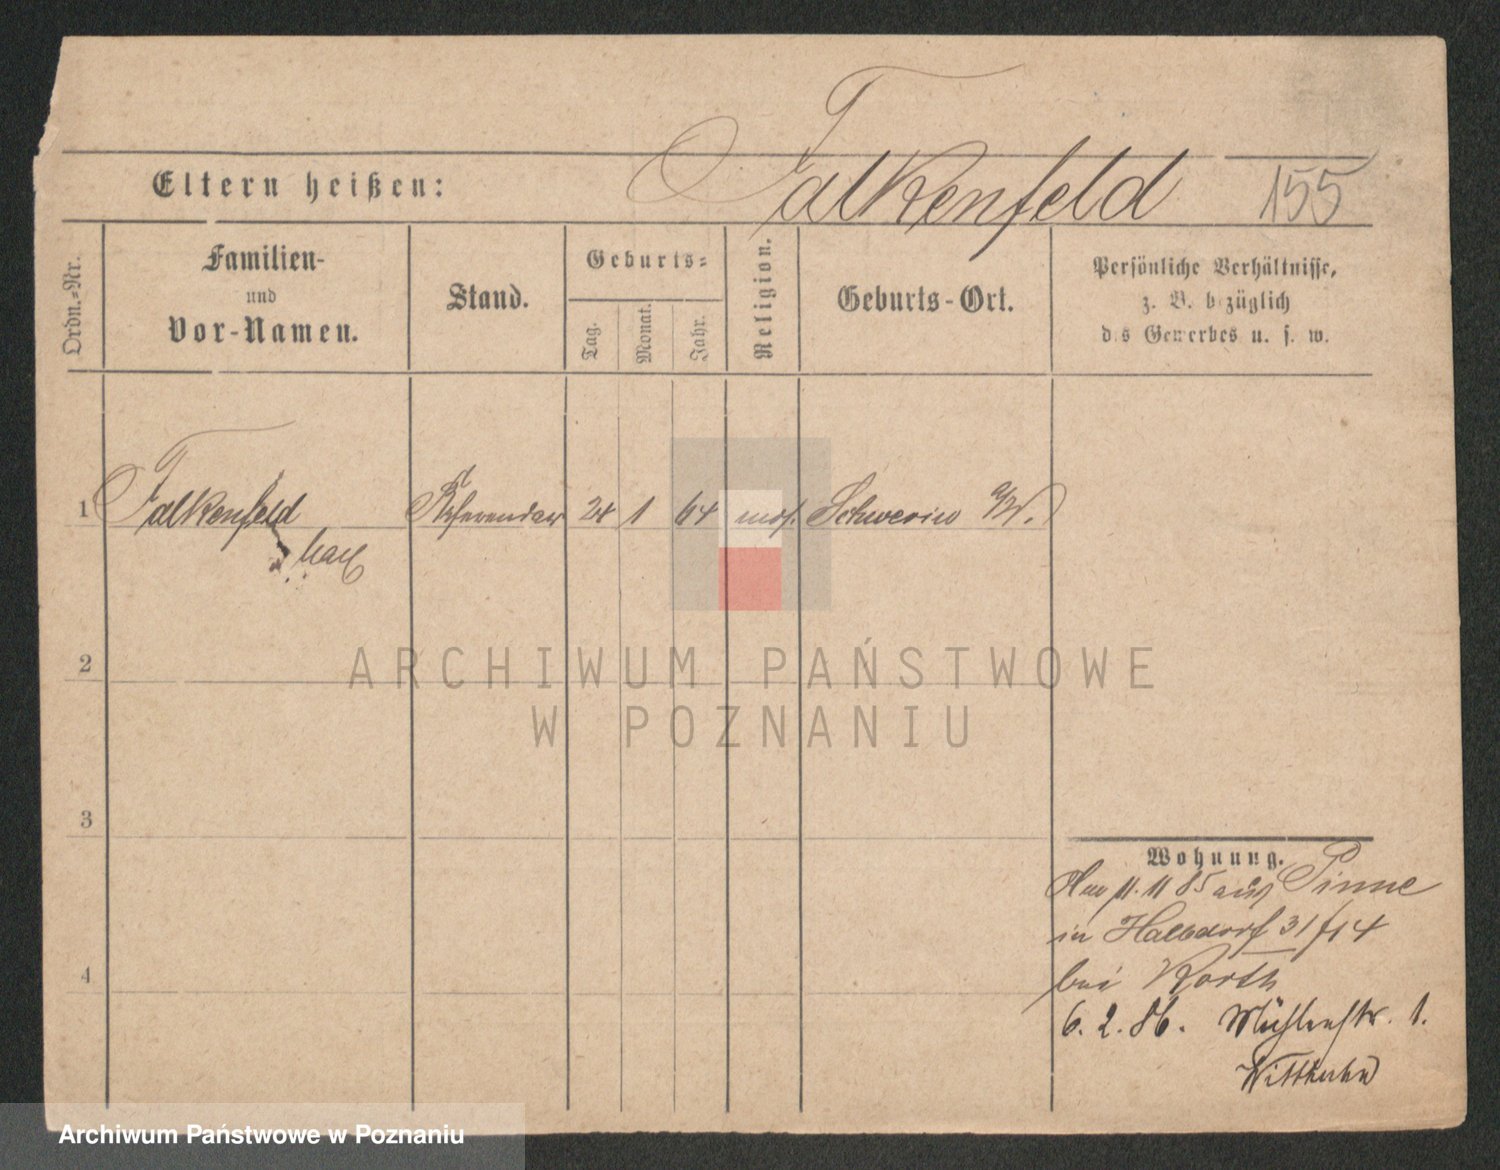 Falkenfeld 155
Eltern heißen:
Ordn.=Nr.
Familien-
und
Vor-Namen.
Stand.
Geburts=
Tag.
Monat.
Jahr.
Religion.
Geburts-Ort.
Persönliche Verhältnisse,
z. B. bezüglich
des Gewerbes u. s. w.
1 Falkenfeld Referendar 24 1 64 mos. Schwerin a/W.
2
3
4
Wohnung.
Am 11.11 85 aus Pinne
in Halbdorf 31
bei Korth
6. 2. 86. Mühlenstr. 1.
ARCHIWUM PAŃSTWOWE
W POZNANIU
Archiwum Państwowe w Poznaniu